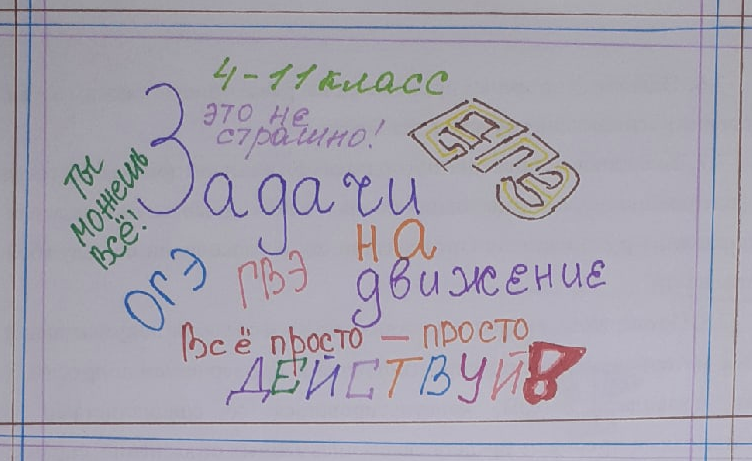 4-11 класс
это не
страшно!
ЕГЭ
Ты
можешь
всё!
Задачи
на
движение
ОГЭ
ГВЭ
Всё просто — просто
ДЕЙСТВУЙ!